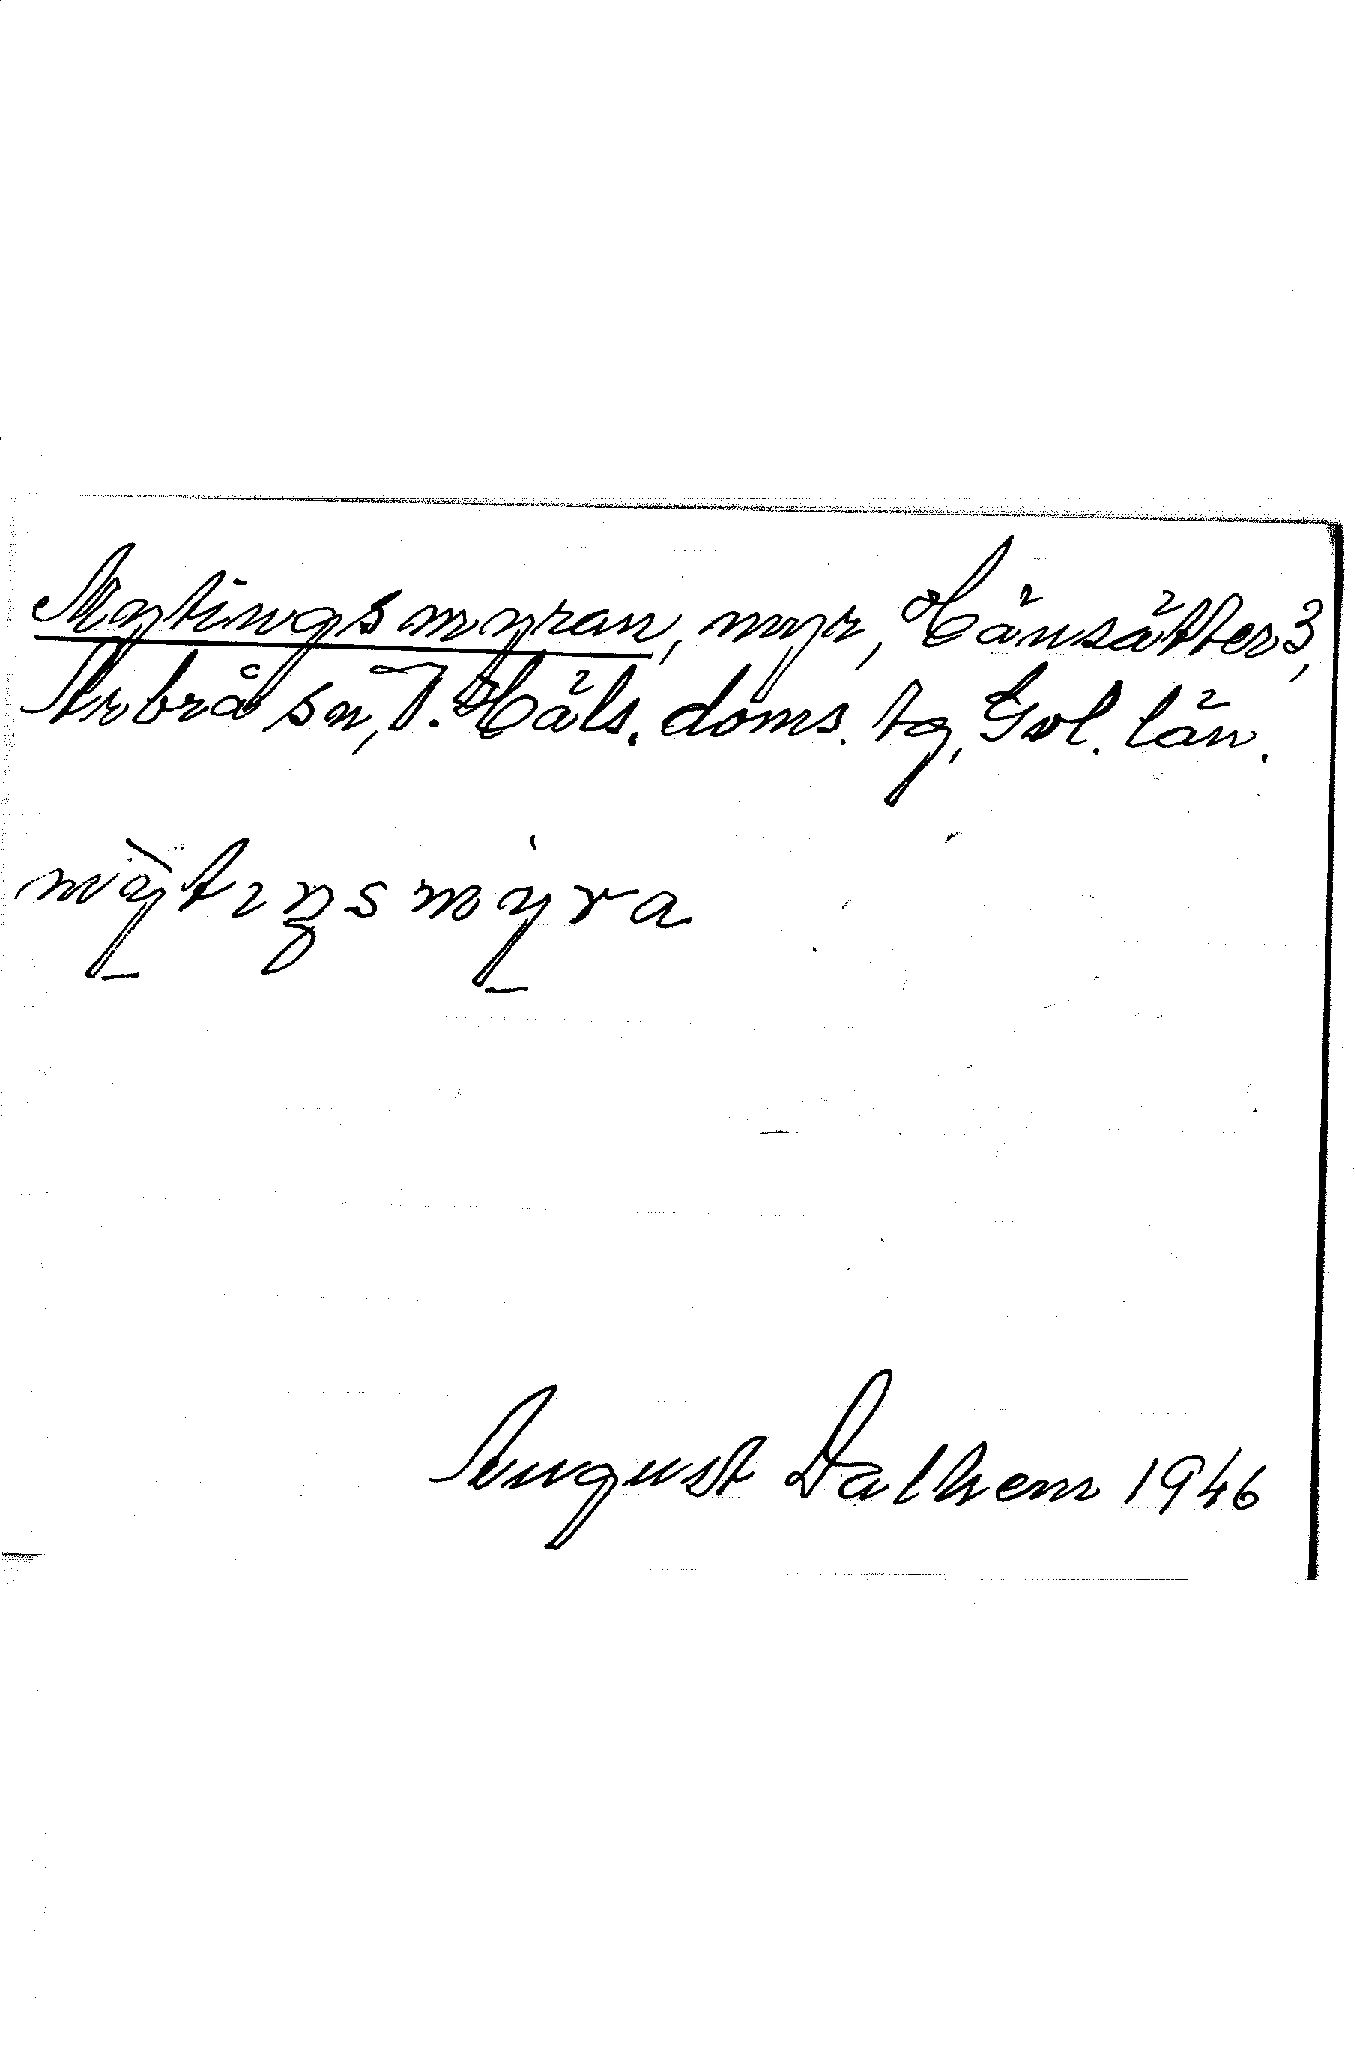 Mytingsmyran, myr, Hänsätter 3,
Arbrå sn, V. Häls. doms. tg, Gvl. län.
mỳ̠tıŋsmy̠̍ra
August Dalhem 1946